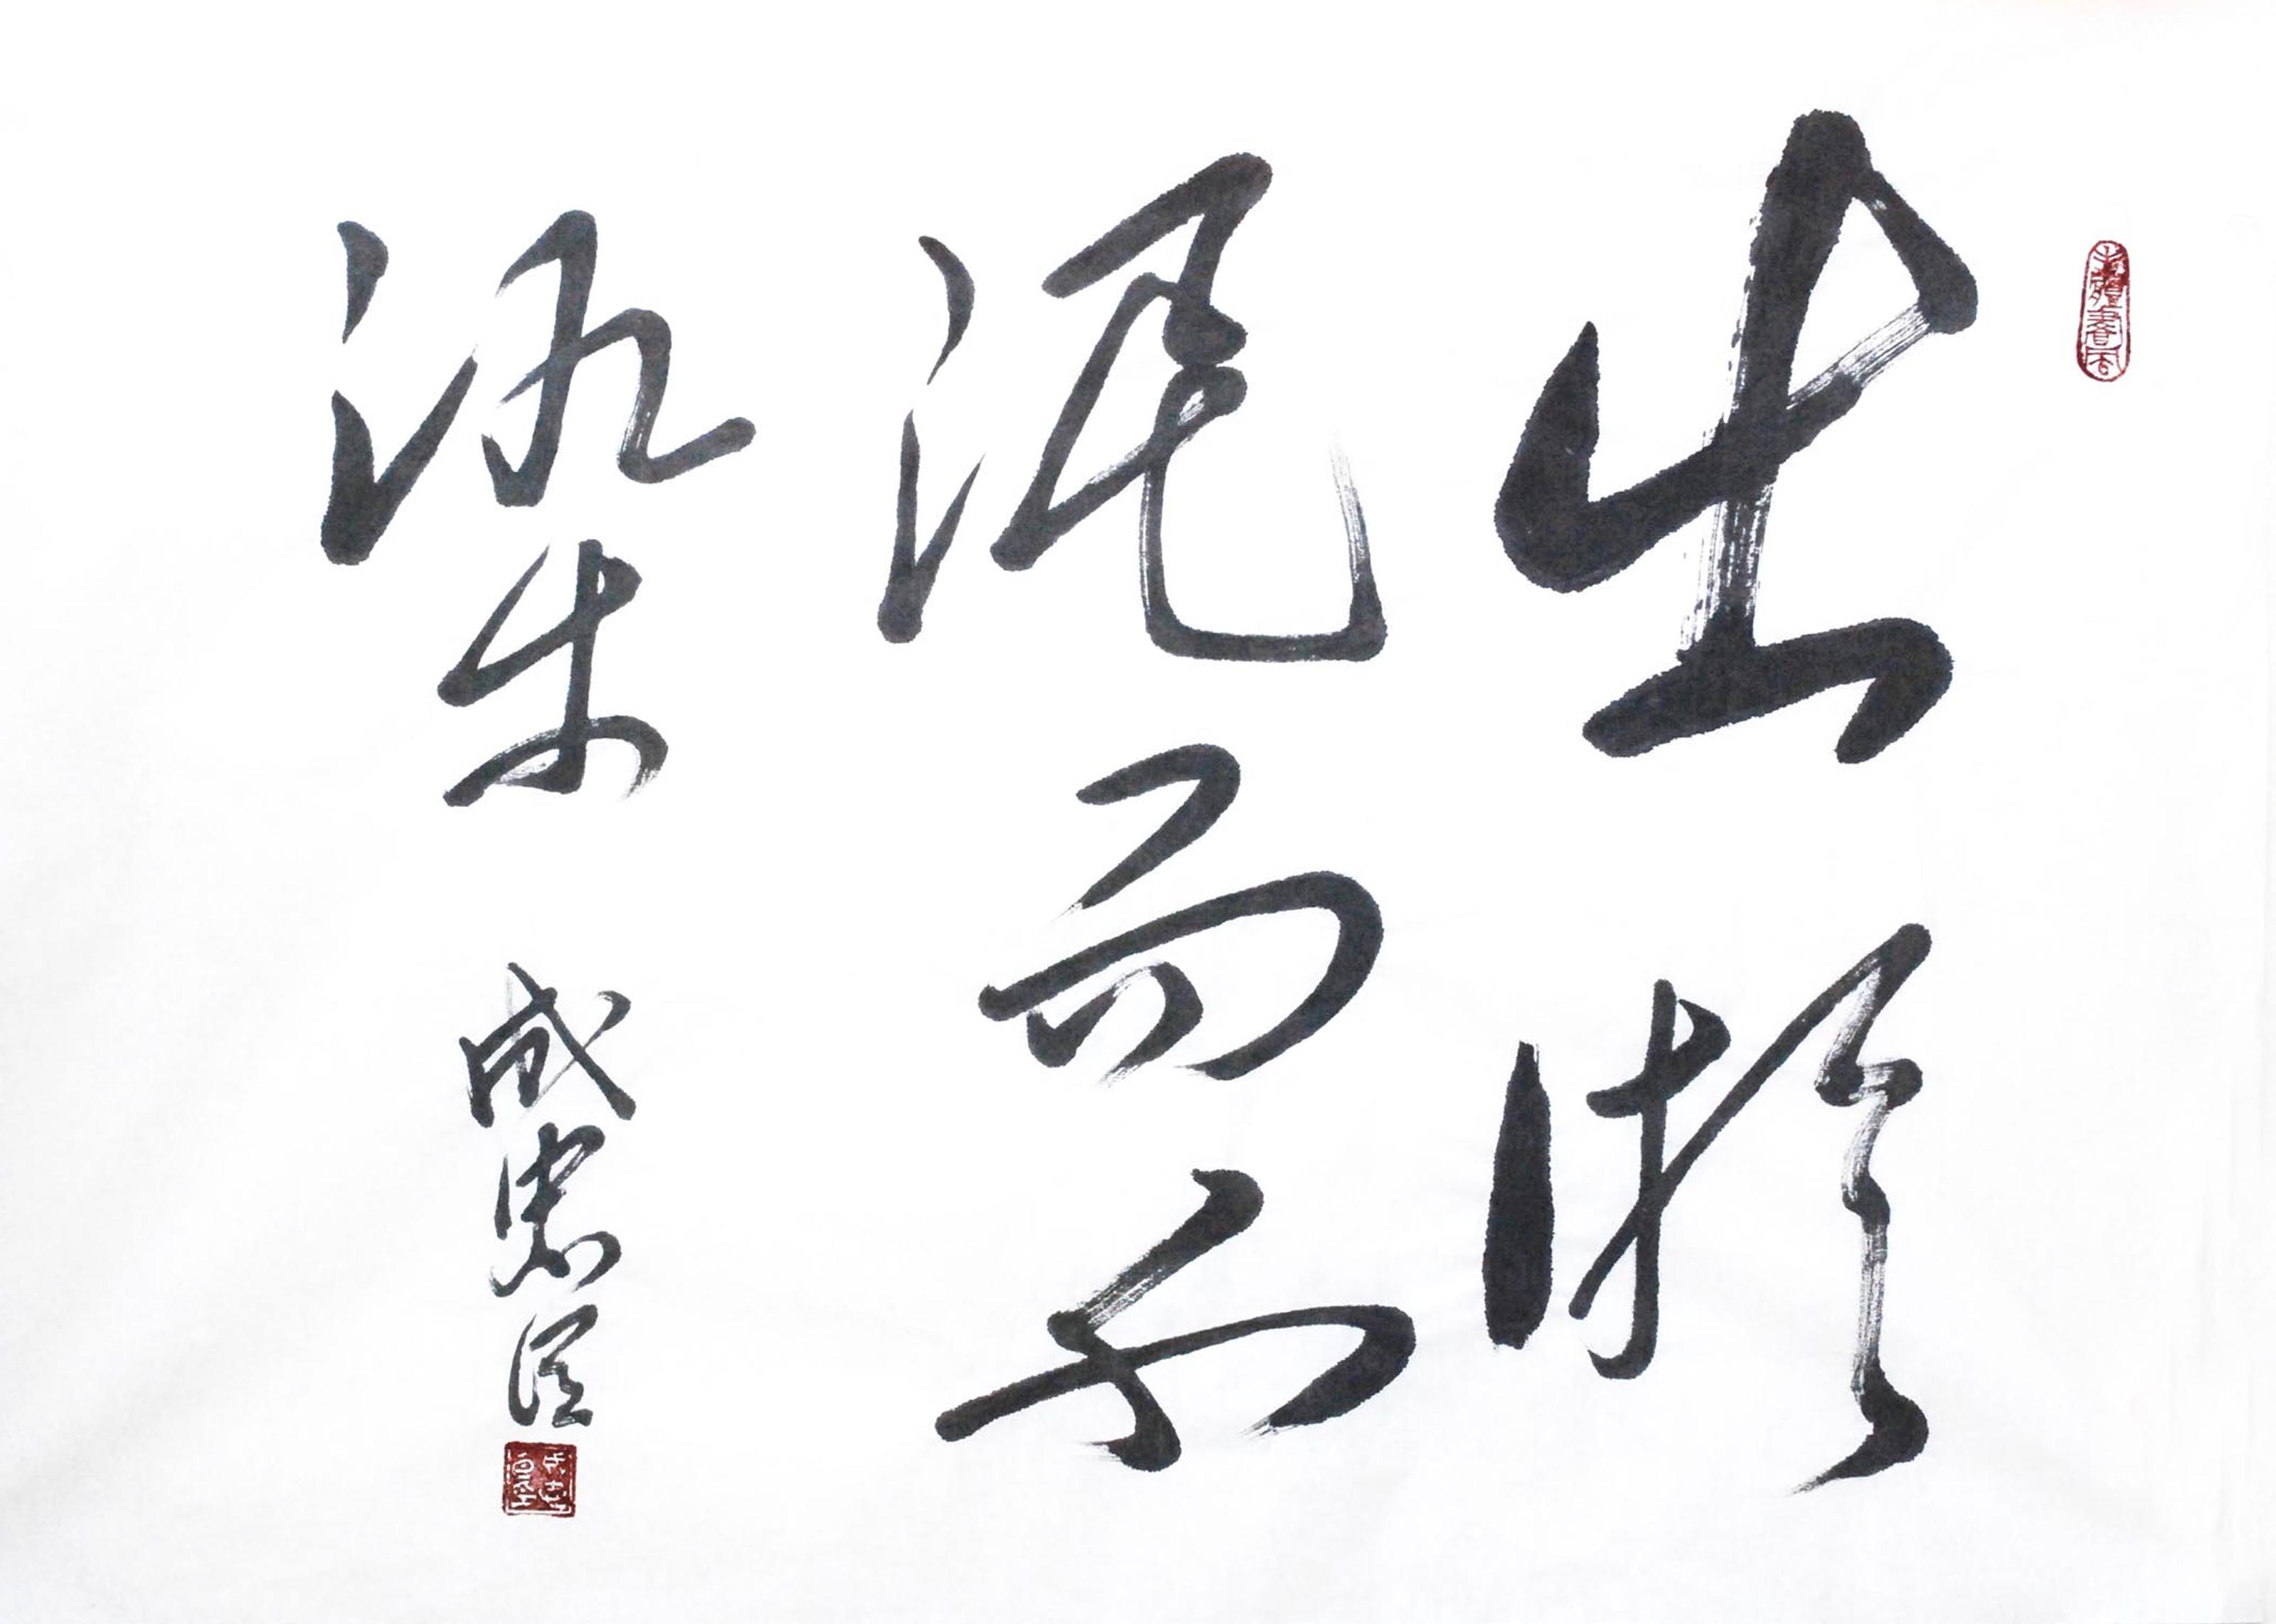 出淤
泥而不
染
成忠臣